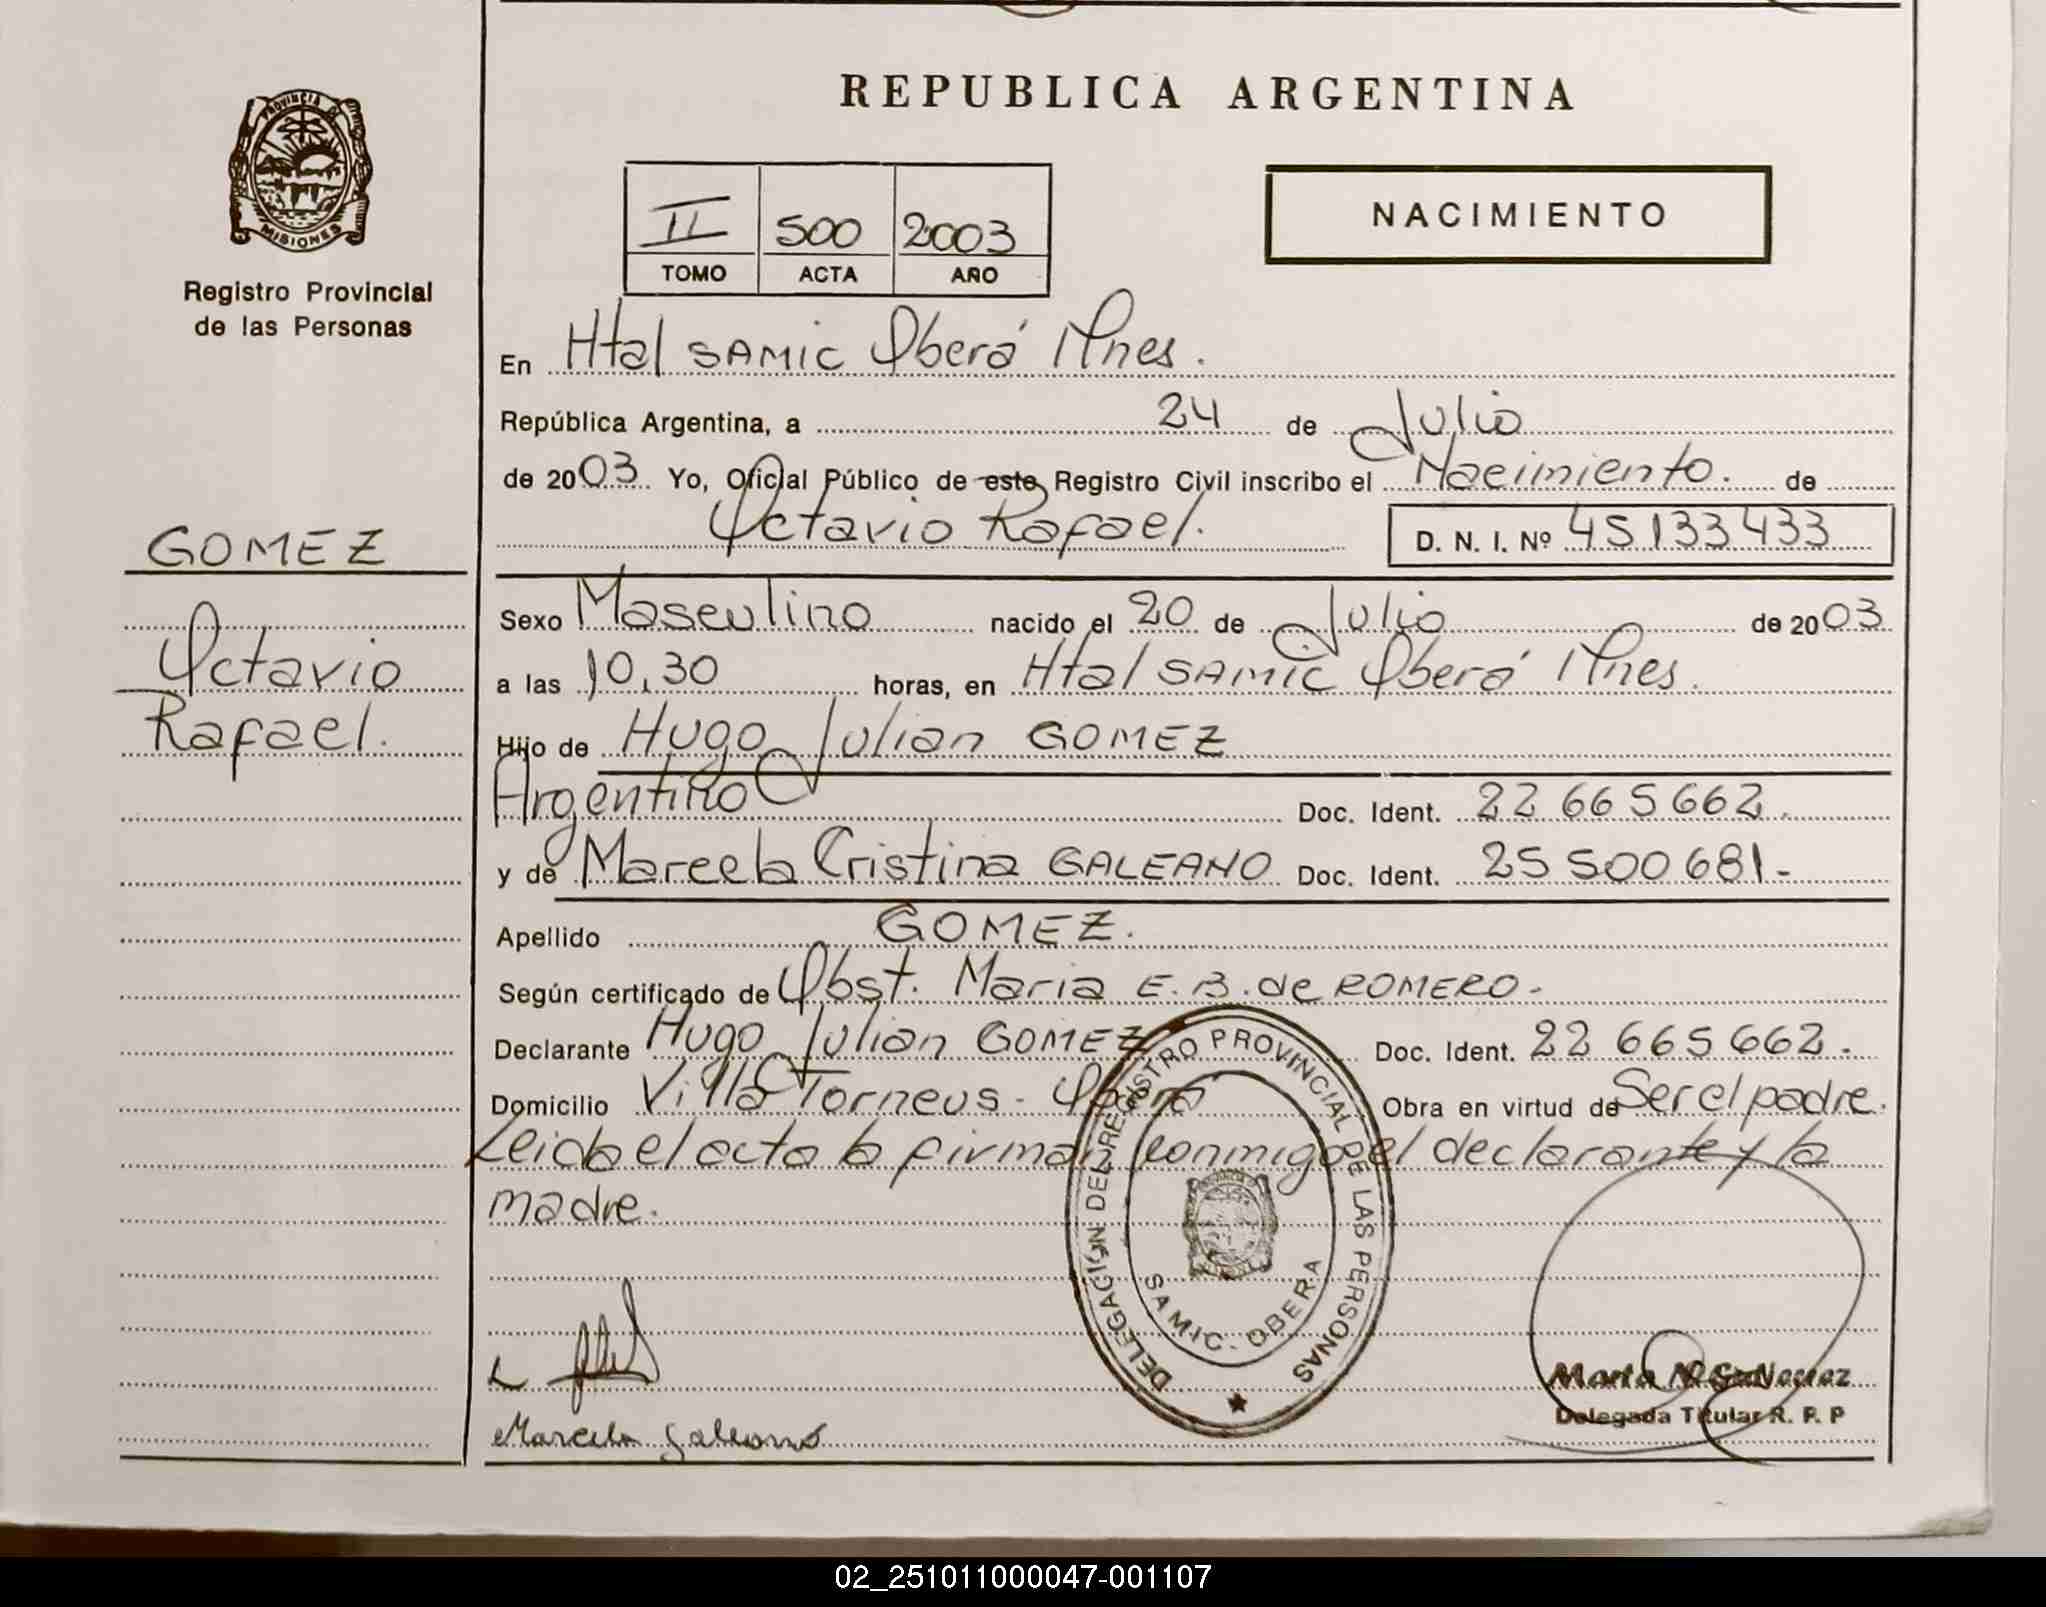 REPUBLICA ARGENTINA
PROVINCIA DE
MISIONES
Registro Provincial
de las Personas
II 500 2003
TOMO ACTA AÑO
NACIMIENTO
En Htal SAMIC Oberá Mnes.
República Argentina, a 24 de Julio
de 2003. Yo, Oficial Público de este Registro Civil inscribo el Nacimiento. de
Octavio Rafael.
D. N. I. Nº 45133433
GOMEZ
Octavio
Rafael.
Sexo Masculino nacido el 20 de Julio de 2003
a las 10,30 horas, en Htal SAMIC Oberá Mnes.
Hijo de Hugo Julian GOMEZ
Argentino Doc. Ident. 22 665 662.
y de Marcela Cristina GALEANO Doc. Ident. 25 500 681.-
Apellido GOMEZ.
Según certificado de Obst. Maria E. B. de ROMERO.-
Declarante Hugo Julian GOMEZ Doc. Ident. 22 665 662.
Domicilio Villa Torneus - Oberá Obra en virtud de Ser el padre.
Leida el acta la firman conmigo el declarante y la
madre.
DELEGACIÓN DEL REGISTRO PROVINCIAL DE LAS PERSONAS
SAMIC - OBERA
Marcela Galeano
Delegada Titular R. P. P
02_251011000047-001107